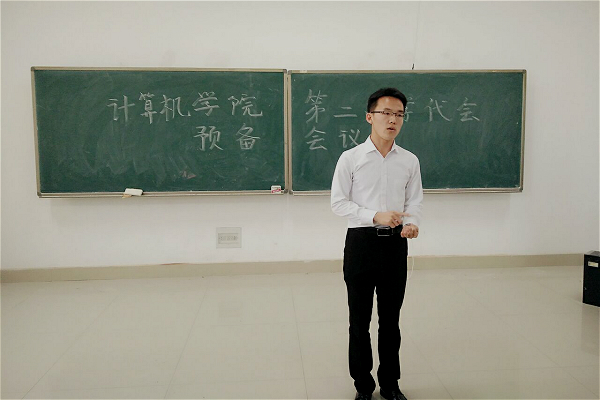 计算机学院 第二 代会
预备 会议